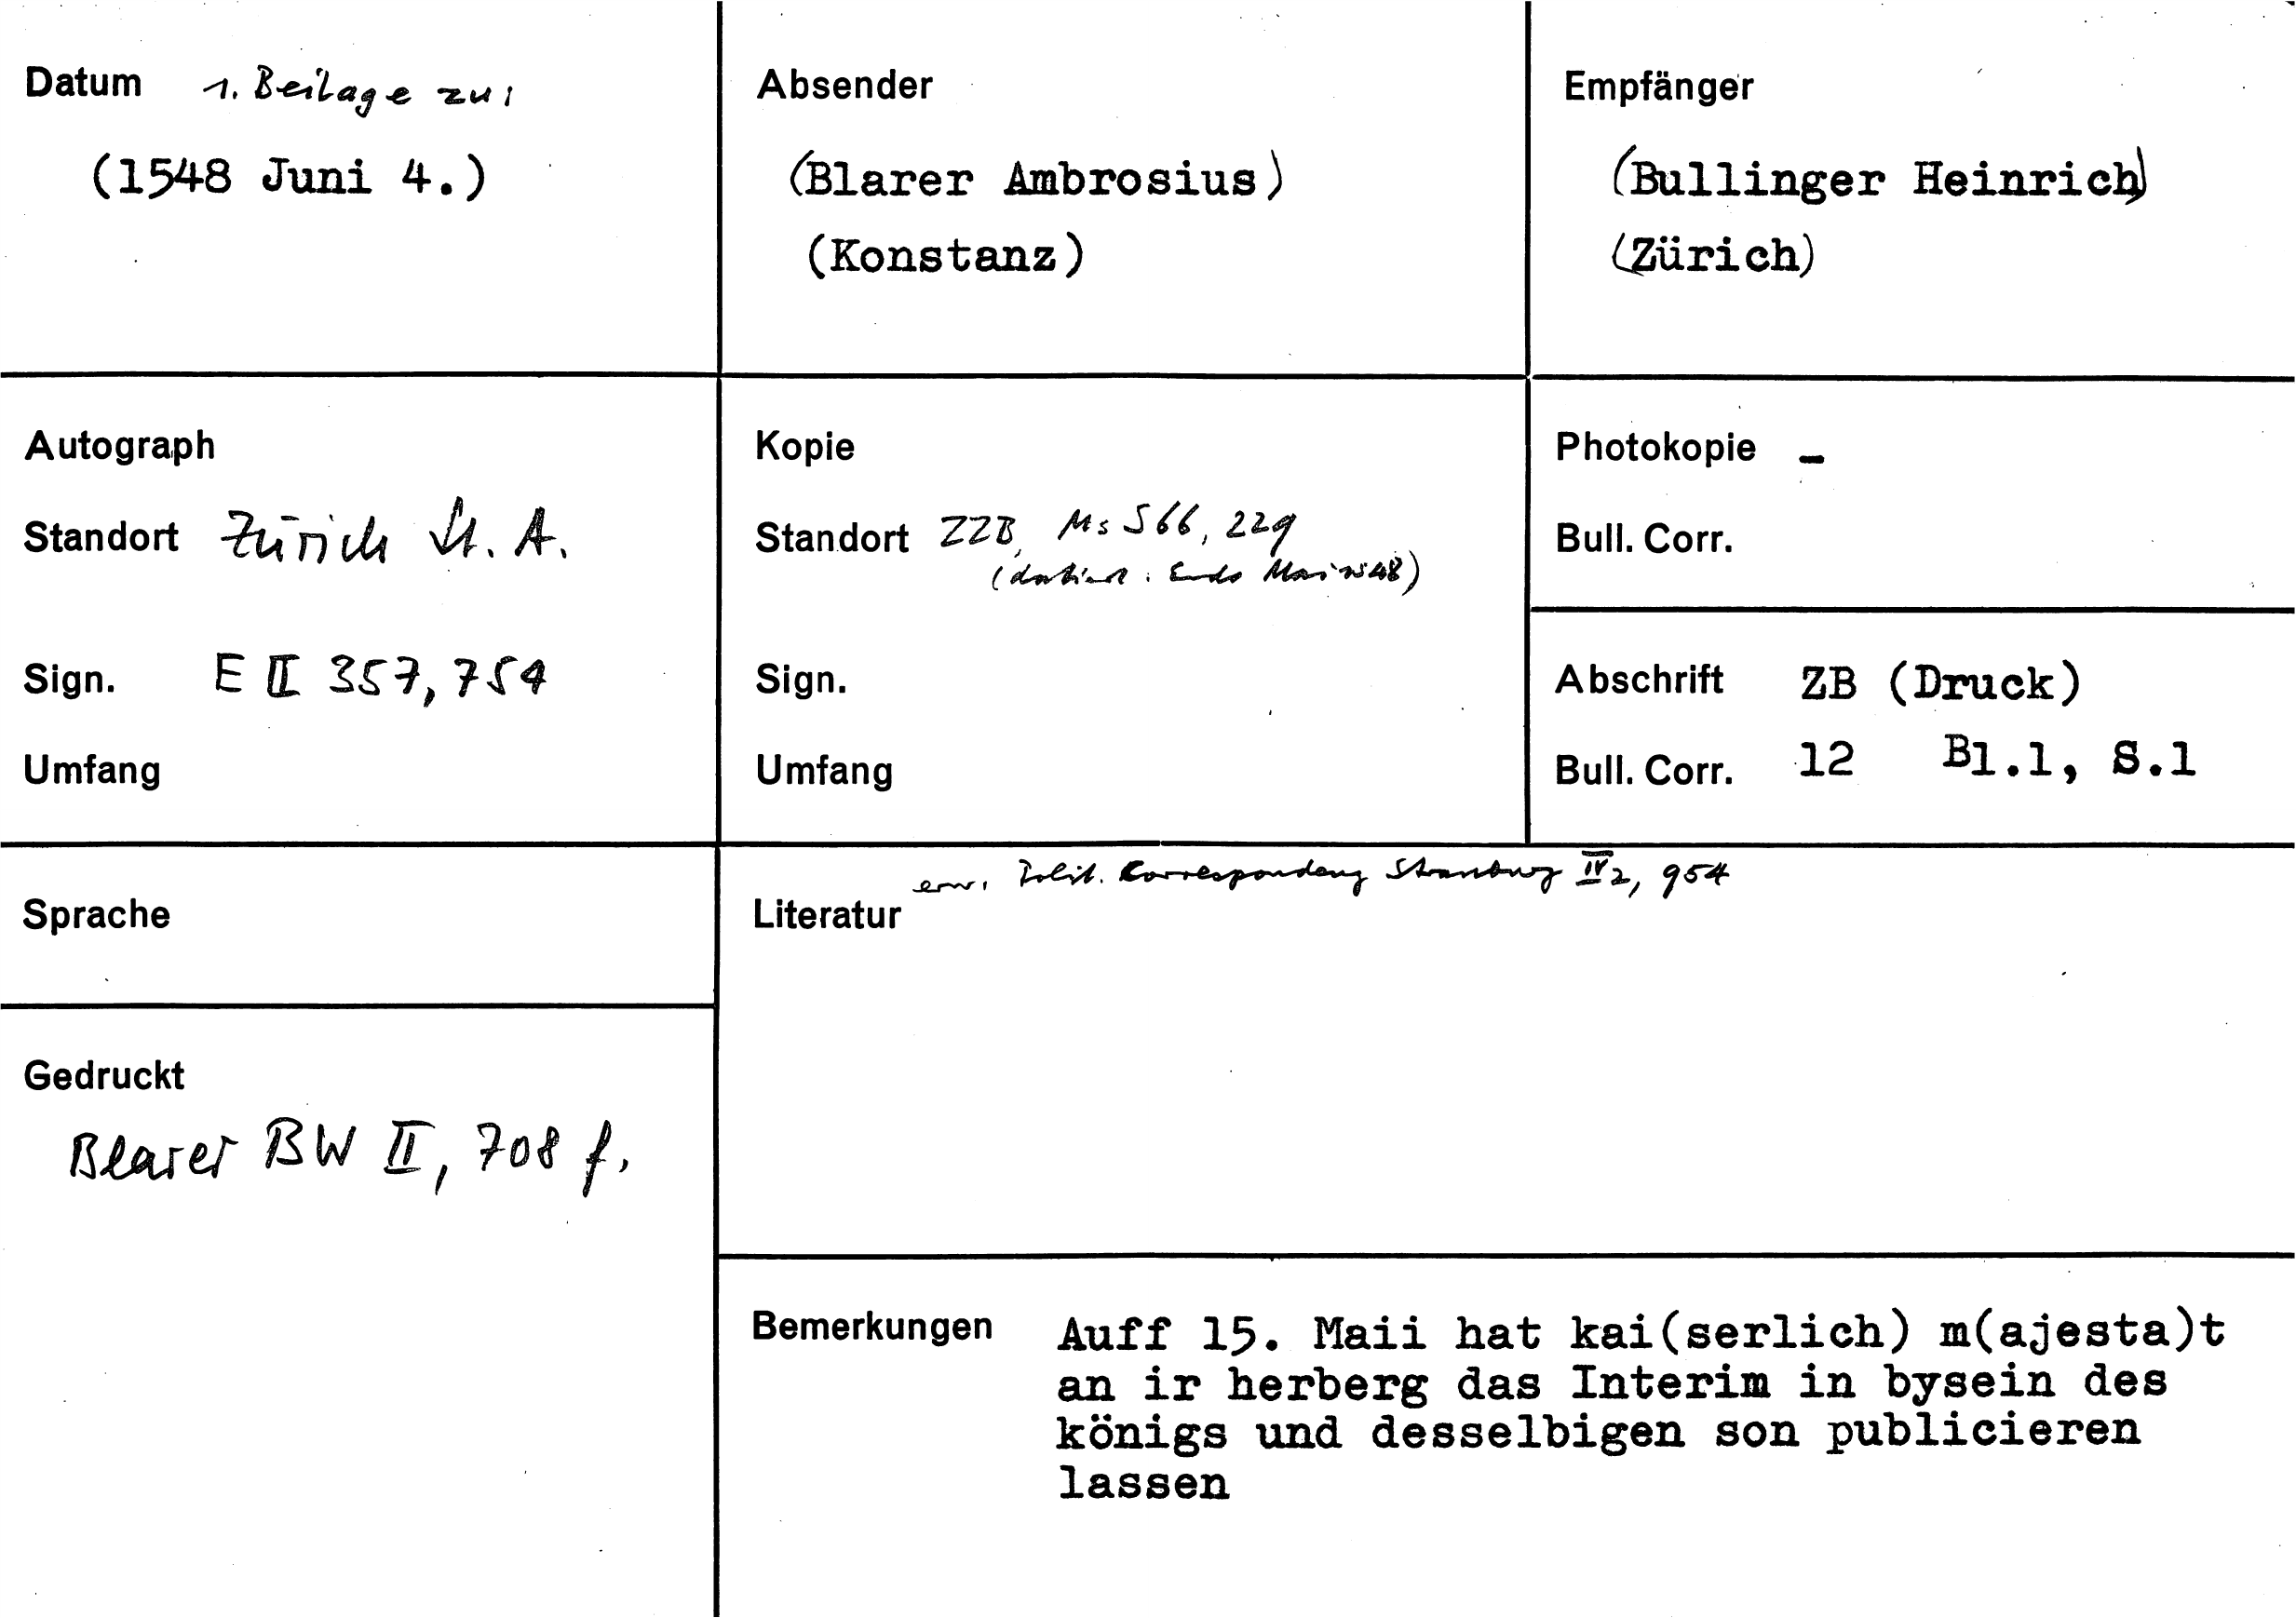 Datum 1. Beilage zu:
(1548 Juni 4.)
Absender
(Blarer Ambrosius)
(Konstanz)
Empfänger
(Bullinger Heinrich)
(Zürich)
Autograph
Standort Zürich St. A.
Sign. E II 357, 754
Umfang
Kopie
Standort ZZB, Ms S 66, 229
(datiert: Ende Mai 1548)
Sign.
Umfang
Photokopie -
Bull. Corr.
Abschrift ZB (Druck)
Bull. Corr. 12 Bl.1, S.1
Sprache
Gedruckt
Blarer BW II, 708 f.
erw. Polit. Correspondenz Strassburg IV 2, 954
Literatur
Bemerkungen Auff 15. Maii hat kai(serlich) m(ajesta)t
an ir herberg das Interim in bysein des
königs und desselbigen son publicieren
lassen